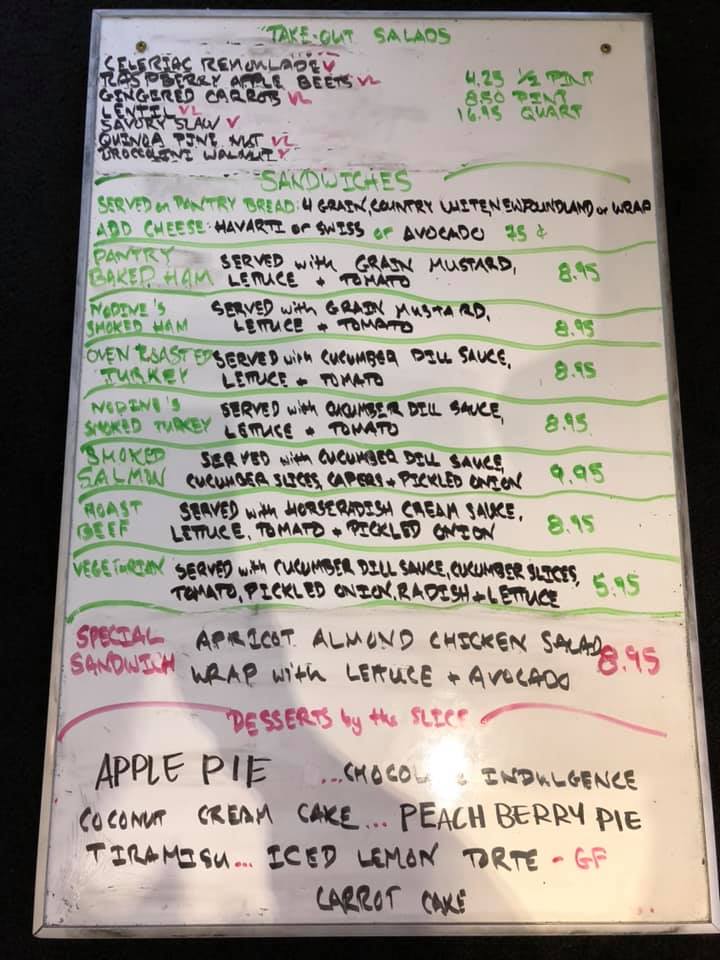 TAKE-OUT SALADS
CELERIAC REMOULADE V
RASPBERRY APPLE BEETS VL 4.25 1/2 PINT
GINGERED CARROTS VL 8.50 PINT
LENTIL VL 16.95 QUART
SAVORY SLAW V
QUINOA PINE NUT VL
BROCCOLINI WALNUT V
SANDWICHES
SERVED on PANTRY BREAD: 4 GRAIN, COUNTRY WHITE, NEWFOUNDLAND or WRAP
ADD CHEESE: HAVARTI or SWISS or AVOCADO 75¢
PANTRY SERVED with GRAIN MUSTARD,
BAKED HAM LETTUCE + TOMATO 8.95
NODINE'S SERVED with GRAIN MUSTARD,
SMOKED HAM LETTUCE + TOMATO 8.95
OVEN ROASTED SERVED with CUCUMBER DILL SAUCE,
TURKEY LETTUCE + TOMATO 8.95
NODINE'S SERVED with CUCUMBER DILL SAUCE,
SMOKED TURKEY LETTUCE + TOMATO 8.95
SMOKED SERVED with CUCUMBER DILL SAUCE,
SALMON CUCUMBER SLICES, CAPERS + PICKLED ONION 9.95
ROAST SERVED with HORSERADISH CREAM SAUCE,
BEEF LETTUCE, TOMATO + PICKLED ONION 8.95
VEGETARIAN SERVED with CUCUMBER DILL SAUCE, CUCUMBER SLICES,
TOMATO, PICKLED ONION, RADISH + LETTUCE 5.95
SPECIAL APRICOT ALMOND CHICKEN SALAD
SANDWICH WRAP with LETTUCE + AVOCADO 8.95
DESSERTS by the SLICE
APPLE PIE ...CHOCOLATE INDULGENCE
COCONUT CREAM CAKE... PEACH BERRY PIE
TIRAMISU... ICED LEMON TORTE - GF
CARROT CAKE